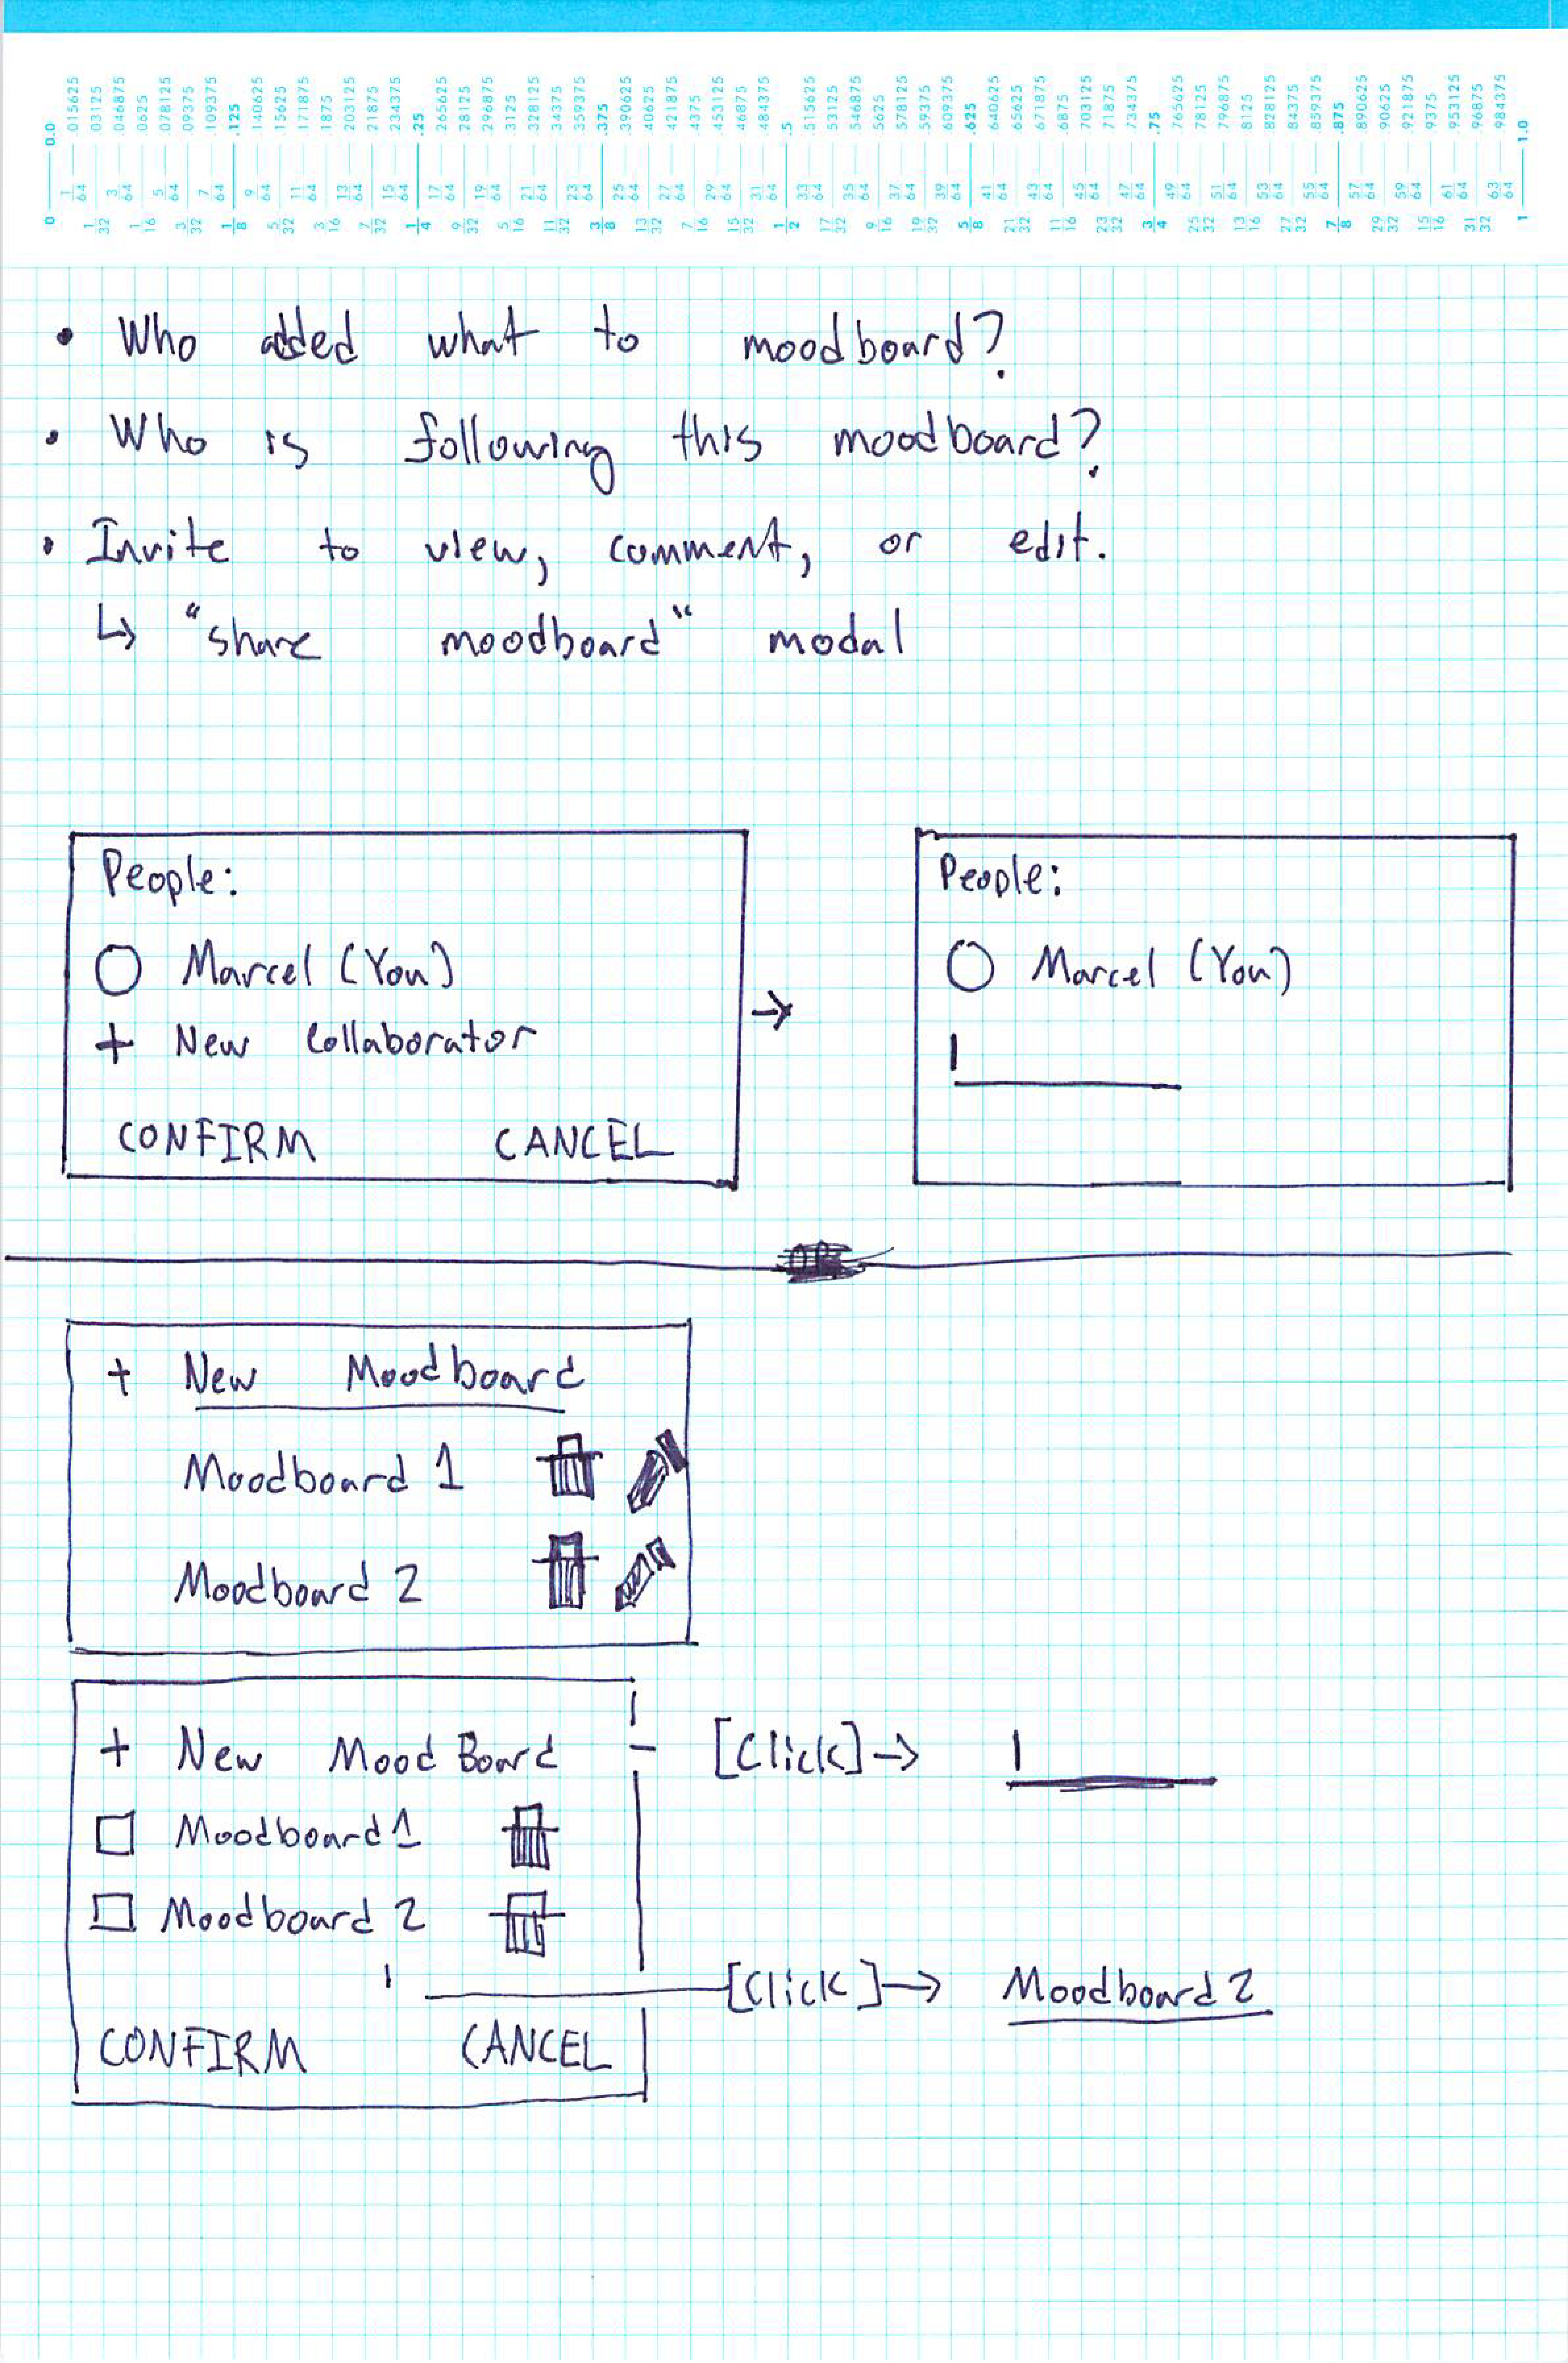 0.0 015625 03125 046875 0625 078125 09375 .109375 .125 140625 15625 171875 1875 203125 21875 234375 .25 265625 28125 296875 3125 .328125 34375 359375 .375 .390625 40625 421875 .4375 .453125 46875 484375 .5 515625 53125 546875 5625 578125 .59375 609375 .625 640625 65625 671875 .6875 703125 71875 734375 .75 765625 78125 796875 8125 828125 84375 .859375 .875 .890625 .90625 .921875 .9375 .953125 .96875 984375 1.0
0 1/64 1/32 3/64 1/16 5/64 3/32 7/64 1/8 9/64 5/32 11/64 3/16 13/64 7/32 15/64 1/4 17/64 9/32 19/64 5/16 21/64 11/32 23/64 3/8 25/64 13/32 27/64 7/16 29/64 15/32 31/64 1/2 33/64 17/32 35/64 9/16 37/64 19/32 39/64 5/8 41/64 21/32 43/64 11/16 45/64 23/32 47/64 3/4 49/64 25/32 51/64 13/16 53/64 27/32 55/64 7/8 57/64 29/32 59/64 15/16 61/64 31/32 63/64 1
• Who added what to moodboard?
• Who is following this moodboard?
• Invite to view, comment, or edit.
↳ "share moodboard" modal
People:
○ Marcel (You)
+ New Collaborator
CONFIRM CANCEL
→
People:
○ Marcel (You)
OR
+ New Moodboard
Moodboard 1
Moodboard 2
+ New MoodBoard [Click] →
Moodboard 1
Moodboard 2
[Click] → Moodboard 2
CONFIRM CANCEL